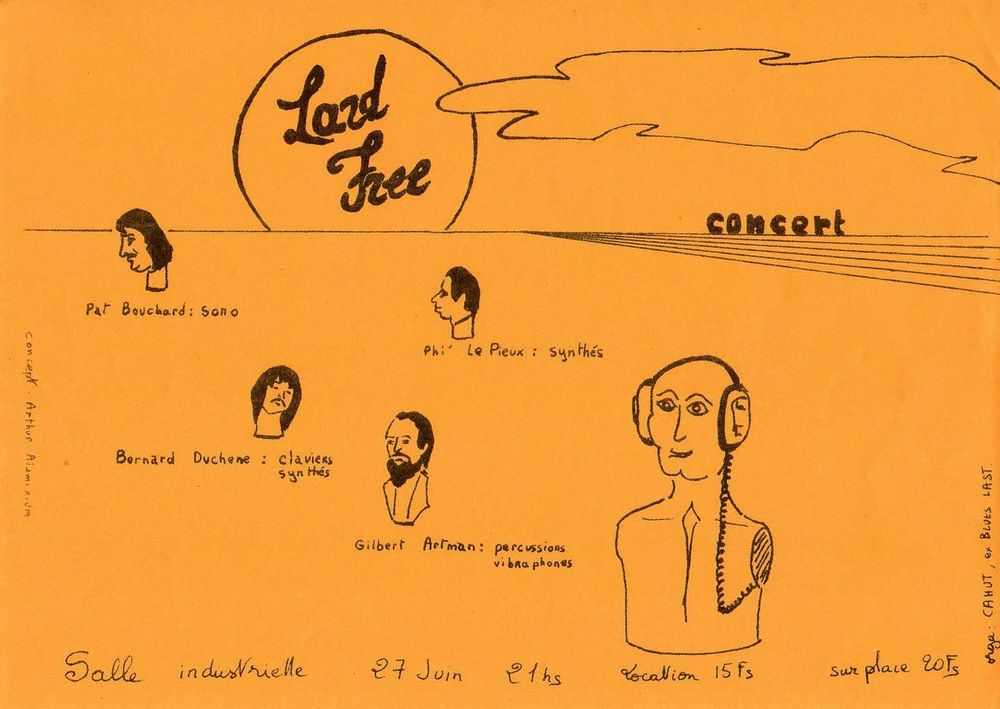 Lard
Free
concert
Pat Bouchard: sono
Phi' Le Pieux : synthés
Bernard Duchene : claviers
synthés
Gilbert Artman: percussions
vibraphones
concept. Arthur Aleminium
orga: CAHUT, ex BLUES LAST.
Salle industrielle 27 Juin 21hs Location 15Fs sur place 20Fs